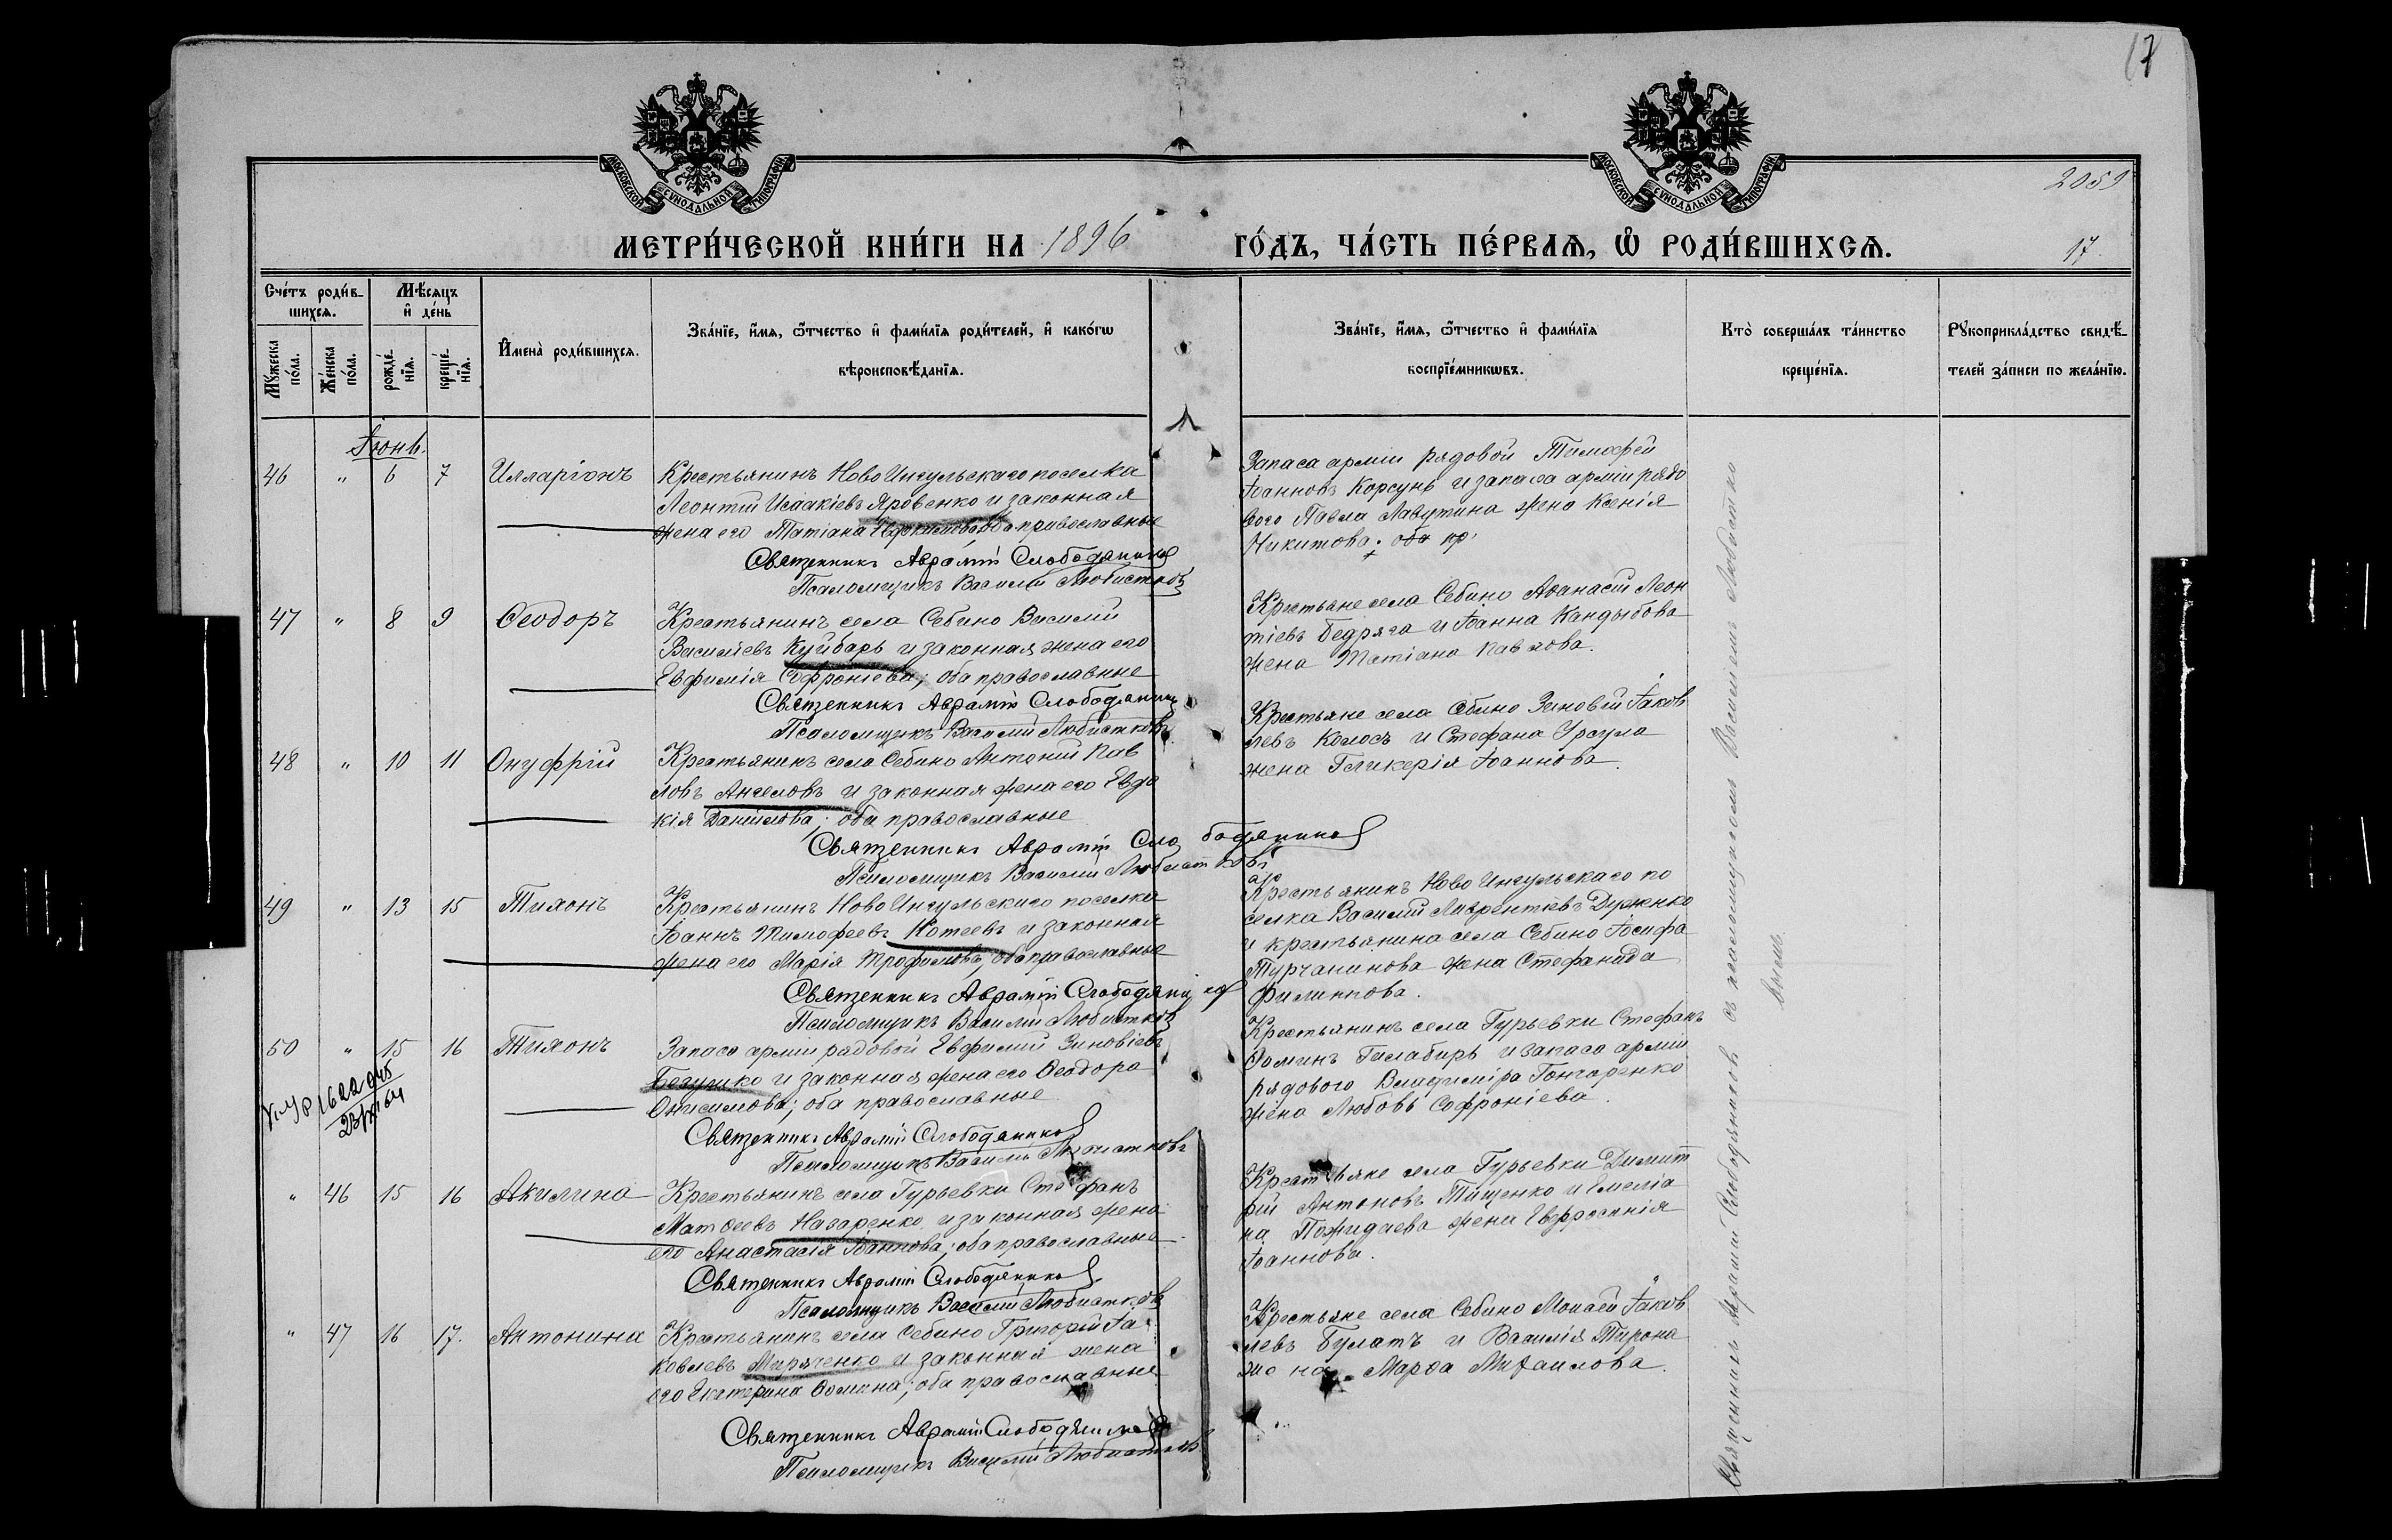 17
МОСКОВСКОЙ СѴНОДАЛЬНОЙ ТИПОГРАФІИ
МОСКОВСКОЙ СѴНОДАЛЬНОЙ ТИПОГРАФІИ
2059
МЕТРИ́ЧЕСКОЙ КНИ́ГИ НА 1896 ГО́ДЪ, ЧА́СТЬ ПЕ́РВАѦ, Ѽ РОДИ́ВШИХСѦ.
17.
Сче́тъ роди́в-
шихсѧ.
Мѣ́сѧцъ
и҆ де́нь
Мꙋ́жеска
по́ла.
Же́нска
по́ла.
рожде́-
нїѧ.
креще́-
нїѧ.
И҆мена̀ роди́вшихсѧ.
Зва́нїе, и҆́мѧ, ѻ҆́тчество и҆ фами́лїѧ роди́телей, и҆ како́гѡ
вѣроисповѣ́данїѧ.
Зва́нїе, и҆́мѧ, ѻ҆́тчество и҆ фами́лїѧ
воспрїе́мникѡвъ.
Кто̀ соверша́лъ та́инство
креще́нїѧ.
Рꙋкоприкла́дство свидѣ́-
телей за́писи по жела́нїю.
Іюнь.
46 " 6 7 Илларіонъ
Крестьянинъ НовоИнгульскаго поселка
Леонтій Исаакіевъ Яровенко и законная
жена его Татіана оба православные
Священникъ Аврамій Слободяниковъ
Псаломщикъ Василій Любистковъ
Запаса арміи рядовой Тимофей
Іоанновъ Корсунь и запаса арміи рядо
вого Павла Лавутина жена Ксенія
Никитова; оба пр.
47 " 8 9 Ѳеодоръ
Крестьянинъ села Себино Василій
Василіевъ Куйбарь и законная жена его
Евфимія Софроніева; оба православные
Священникъ Аврамій Слободяниковъ
Псаломщикъ Василій Любистковъ
Крестьяне села Себино Аѳанасій Леон
тіевъ Бедряга и Іоанна Кандыбова
жена Татіана Павлова.
48 " 10 11 Онуфрій
Крестьянинъ села Себино Антоній Пав
ловъ Ангеловъ и законная жена его Евдо
кія Даніилова; оба православные
Священникъ Аврамій Слободяниковъ
Псаломщикъ Василій Любистковъ
Крестьяне села Себино Зиновій Іаков
левъ Колосъ и Стефана Урсула
жена Гликерія Іоаннова.
49 " 13 15 Тихонъ
Крестьянинъ НовоИнгульскаго поселка
Іоаннъ Тимофеевъ Котеевъ и законная
жена его Марія Трофимова; оба православные
Священникъ Аврамій Слободяниковъ
Псаломщикъ Василій Любистковъ
Крестьянинъ НовоИнгульскаго по
селка Василій Лаврентіевъ Дуженко
и крестьянина села Себино Іосифа
Турчанинова жена Стефанида
Филиппова.
50 " 15 16 Тихонъ
Запаса арміи рядовой Евфимій Зиновіевъ
и законная жена его Ѳеодора
Онисимова; оба православные
Священникъ Аврамій Слободяниковъ
Псаломщикъ Василій Любистковъ
Крестьянинъ села Гурьевки Стефанъ
Ѳоминъ Гилабирь и запаса арміи
рядового Владиміра Гончаренко
жена Любовь Софроніева.
1622
23/XI 64
" 46 15 16 Акилина
Крестьянинъ села Гурьевки Стефанъ
Матѳеевъ Назаренко и законная жена
его Анастасія Іоаннова; оба православные
Священникъ Аврамій Слободяниковъ
Псаломщикъ Василій Любистковъ
Крестьяне села Гурьевки Димит
рій Антоновъ Тищенко и Емеліа
на Пожидаева жена Евфросинія
Іоаннова.
" 47 16 17. Антонина
Крестьянинъ села Себино Григорій Іа
ковлевъ Миряченко и законная жена
его Екатерина Ѳомина; оба православные
Священникъ Аврамій Слободяниковъ
Псаломщикъ Василій Любистковъ
Крестьяне села Себино Моисей Іаков
левъ Булатъ и Василія Тирона
жена Марѳа Михаилова.
Священникъ Аврамій Слободяниковъ съ псаломщикомъ Василіемъ Любистко
вымъ.